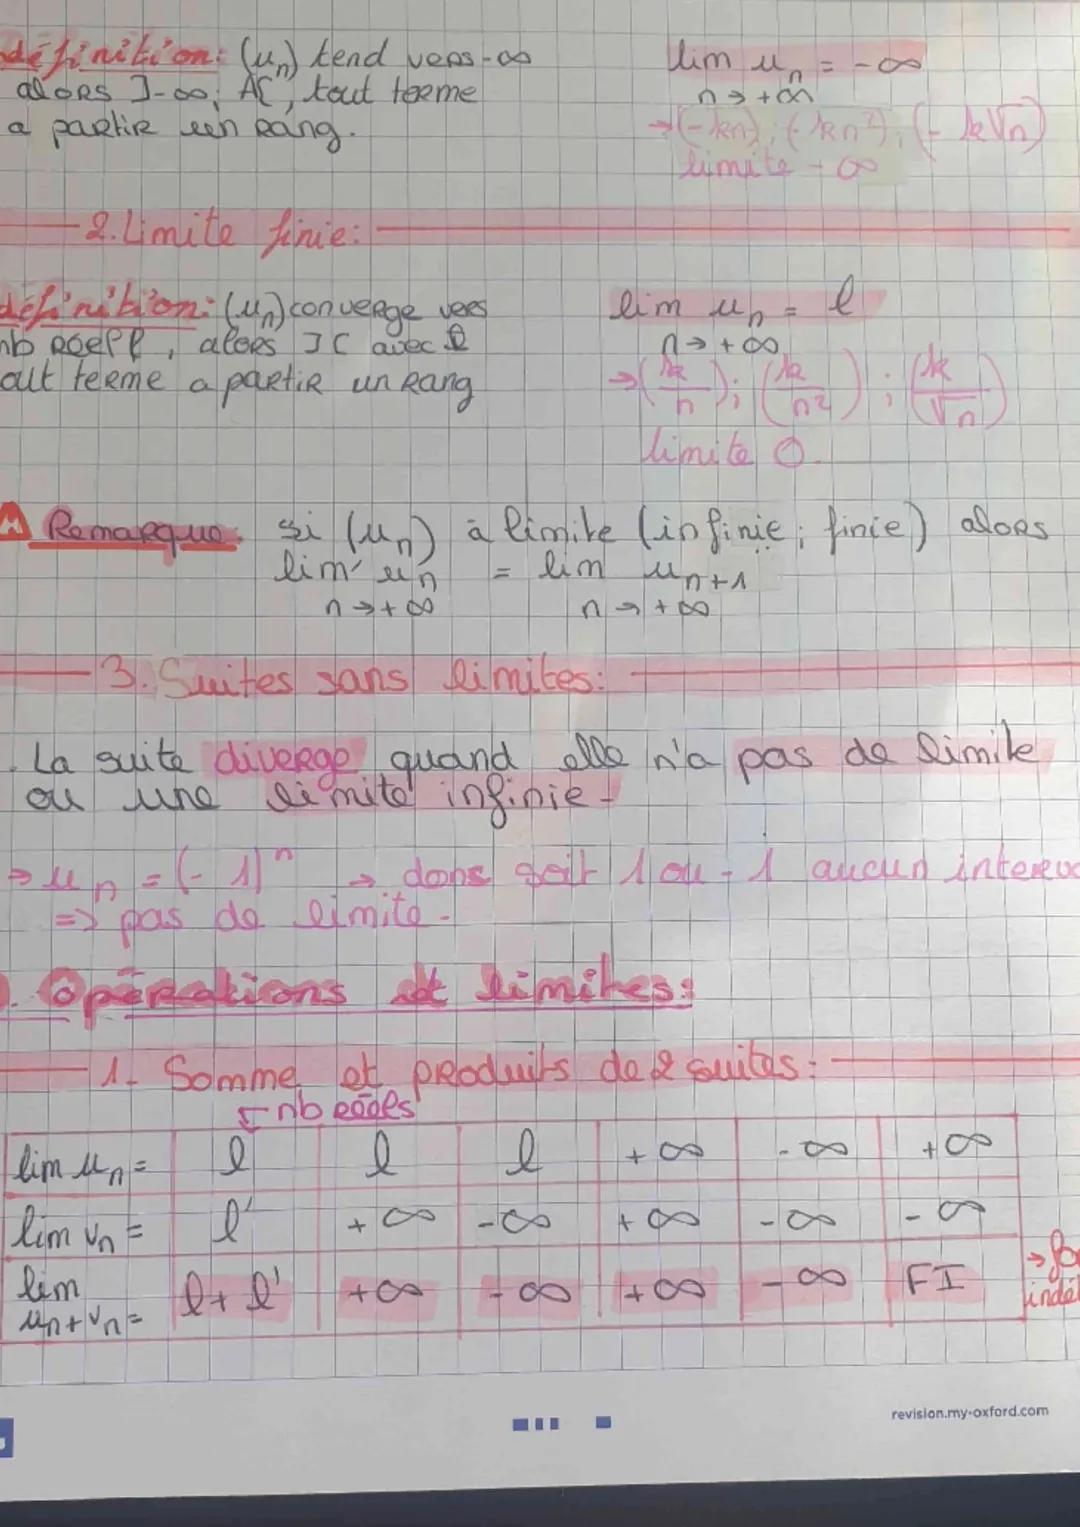 définition: (un) tend vers -∞
alors ]-∞; A[, tout terme
a partir un rang.
lim un = -∞
n→+∞
→(-kn); (-kn²); (-k√n)
limite -∞
2. Limite finie:
définition: (un) converge vers
nb réel l, alors IC avec l
out terme a partir un rang
lim un = l
n→+∞
→(k/n); (k/n²); (k/√n)
limite 0.
Remarque: si (un) à limite (infinie; finie) alors
lim un = lim un+1
n→+∞ n→+∞
3. Suites sans limites:
. La suite diverge quand elle n'a pas de limite
ou une limite infinie.
→ un = (-1)^n → dans soit 1 ou -1 aucun interva
=> pas de limite.
. Opérations et limites:
1. Somme et produits de 2 suites:
nb réels
lim un = l l l +∞ -∞ +∞
lim vn = l' +∞ -∞ +∞ -∞ -∞
lim un+vn = l+l' +∞ -∞ +∞ -∞ FI → fo
indé
revision.my-oxford.com